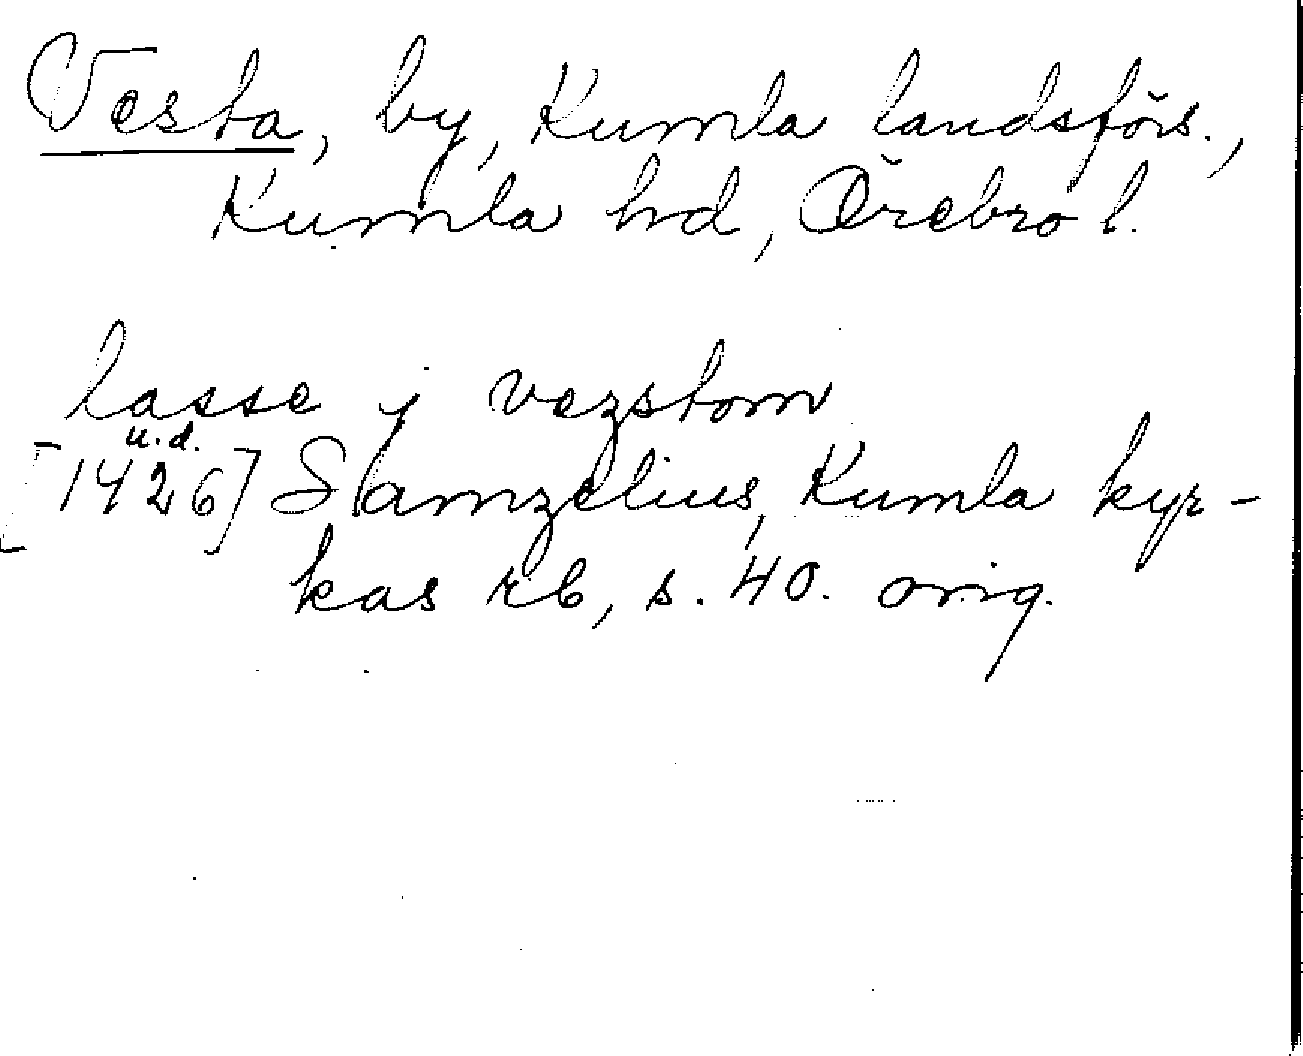 Vesta, by, Kumla landsförs.,
Kumla hd, Örebro l.
lasse j vezstom
u.d.
[1426] Samzelius, Kumla kyr-
kas rb, s. 40. orig.